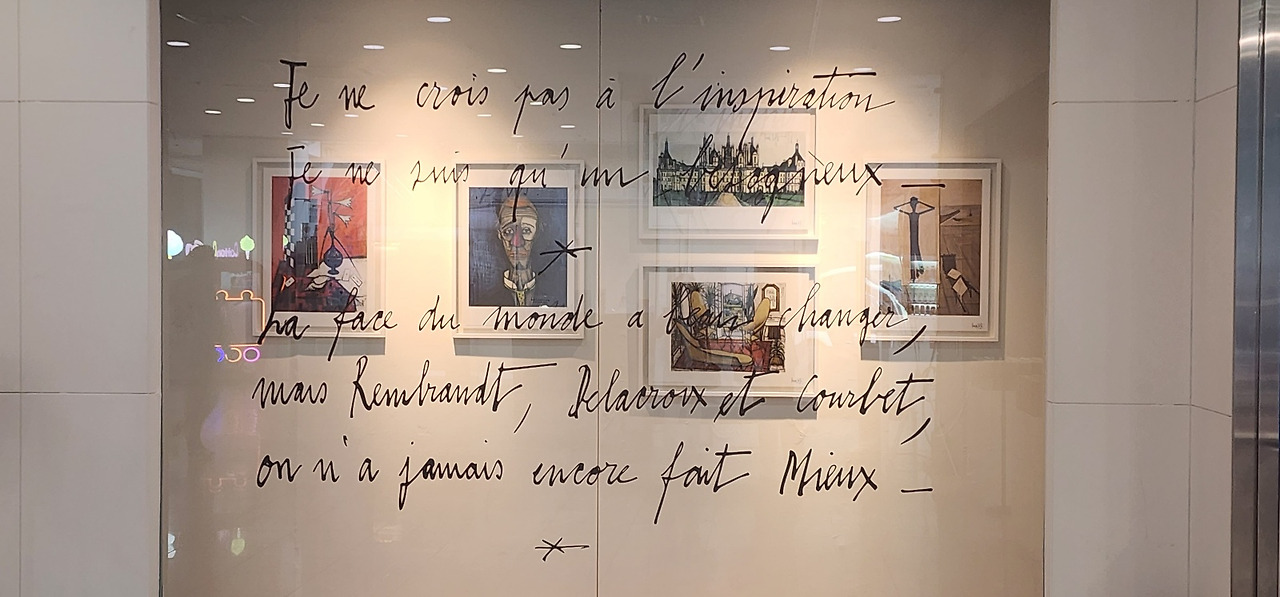 Je ne crois pas à l'inspiration
Je ne suis qu'un besogneux —
La face du monde a beau changer,
mais Rembrandt, Delacroix et Courbet,
on n'a jamais encore fait Mieux —